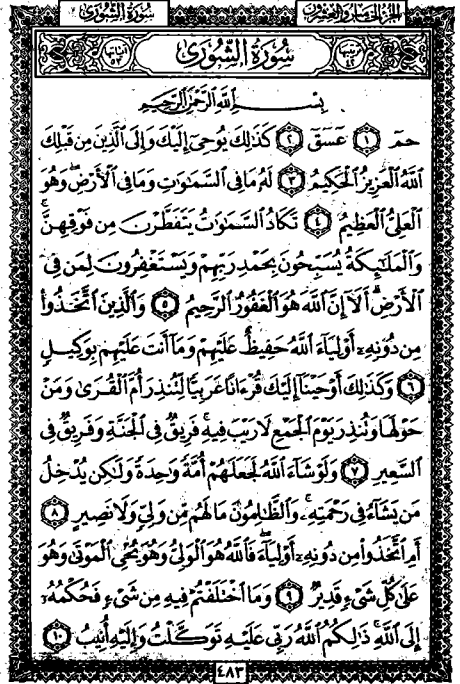 سُورَةُ الشُّورَىٰ
الجزء الخامس والعشرون
سُورَةُ الشُّورَىٰ
بِسْمِ ٱللَّهِ ٱلرَّحْمَٰنِ ٱلرَّحِيمِ
حمٓ ١ عٓسٓقٓ ٢ كَذَٰلِكَ يُوحِىٓ إِلَيْكَ وَإِلَى ٱلَّذِينَ مِن قَبْلِكَ
ٱللَّهُ ٱلْعَزِيزُ ٱلْحَكِيمُ ٣ لَهُۥ مَا فِى ٱلسَّمَٰوَٰتِ وَمَا فِى ٱلْأَرْضِ ۖ وَهُوَ
ٱلْعَلِىُّ ٱلْعَظِيمُ ٤ تَكَادُ ٱلسَّمَٰوَٰتُ يَتَفَطَّرْنَ مِن فَوْقِهِنَّ ۚ
وَٱلْمَلَٰٓئِكَةُ يُسَبِّحُونَ بِحَمْدِ رَبِّهِمْ وَيَسْتَغْفِرُونَ لِمَن فِى
ٱلْأَرْضِ ۗ أَلَآ إِنَّ ٱللَّهَ هُوَ ٱلْغَفُورُ ٱلرَّحِيمُ ٥ وَٱلَّذِينَ ٱتَّخَذُوا۟
مِن دُونِهِۦٓ أَوْلِيَآءَ ٱللَّهُ حَفِيظٌ عَلَيْهِمْ وَمَآ أَنتَ عَلَيْهِم بِوَكِيلٍ
٦ وَكَذَٰلِكَ أَوْحَيْنَآ إِلَيْكَ قُرْءَانًا عَرَبِيًّا لِّتُنذِرَ أُمَّ ٱلْقُرَىٰ وَمَنْ
حَوْلَهَا وَتُنذِرَ يَوْمَ ٱلْجَمْعِ لَا رَيْبَ فِيهِ ۚ فَرِيقٌ فِى ٱلْجَنَّةِ وَفَرِيقٌ فِى
ٱلسَّعِيرِ ٧ وَلَوْ شَآءَ ٱللَّهُ لَجَعَلَهُمْ أُمَّةً وَٰحِدَةً وَلَٰكِن يُدْخِلُ
مَن يَشَآءُ فِى رَحْمَتِهِۦ ۚ وَٱلظَّٰلِمُونَ مَا لَهُم مِّن وَلِىٍّ وَلَا نَصِيرٍ ٨
أَمِ ٱتَّخَذُوا۟ مِن دُونِهِۦٓ أَوْلِيَآءَ ۖ فَٱللَّهُ هُوَ ٱلْوَلِىُّ وَهُوَ يُحْىِ ٱلْمَوْتَىٰ وَهُوَ
عَلَىٰ كُلِّ شَىْءٍ قَدِيرٌ ٩ وَمَا ٱخْتَلَفْتُمْ فِيهِ مِن شَىْءٍ فَحُكْمُهُۥٓ
إِلَى ٱللَّهِ ۚ ذَٰلِكُمُ ٱللَّهُ رَبِّى عَلَيْهِ تَوَكَّلْتُ وَإِلَيْهِ أُنِيبُ ١٠
٤٨٣